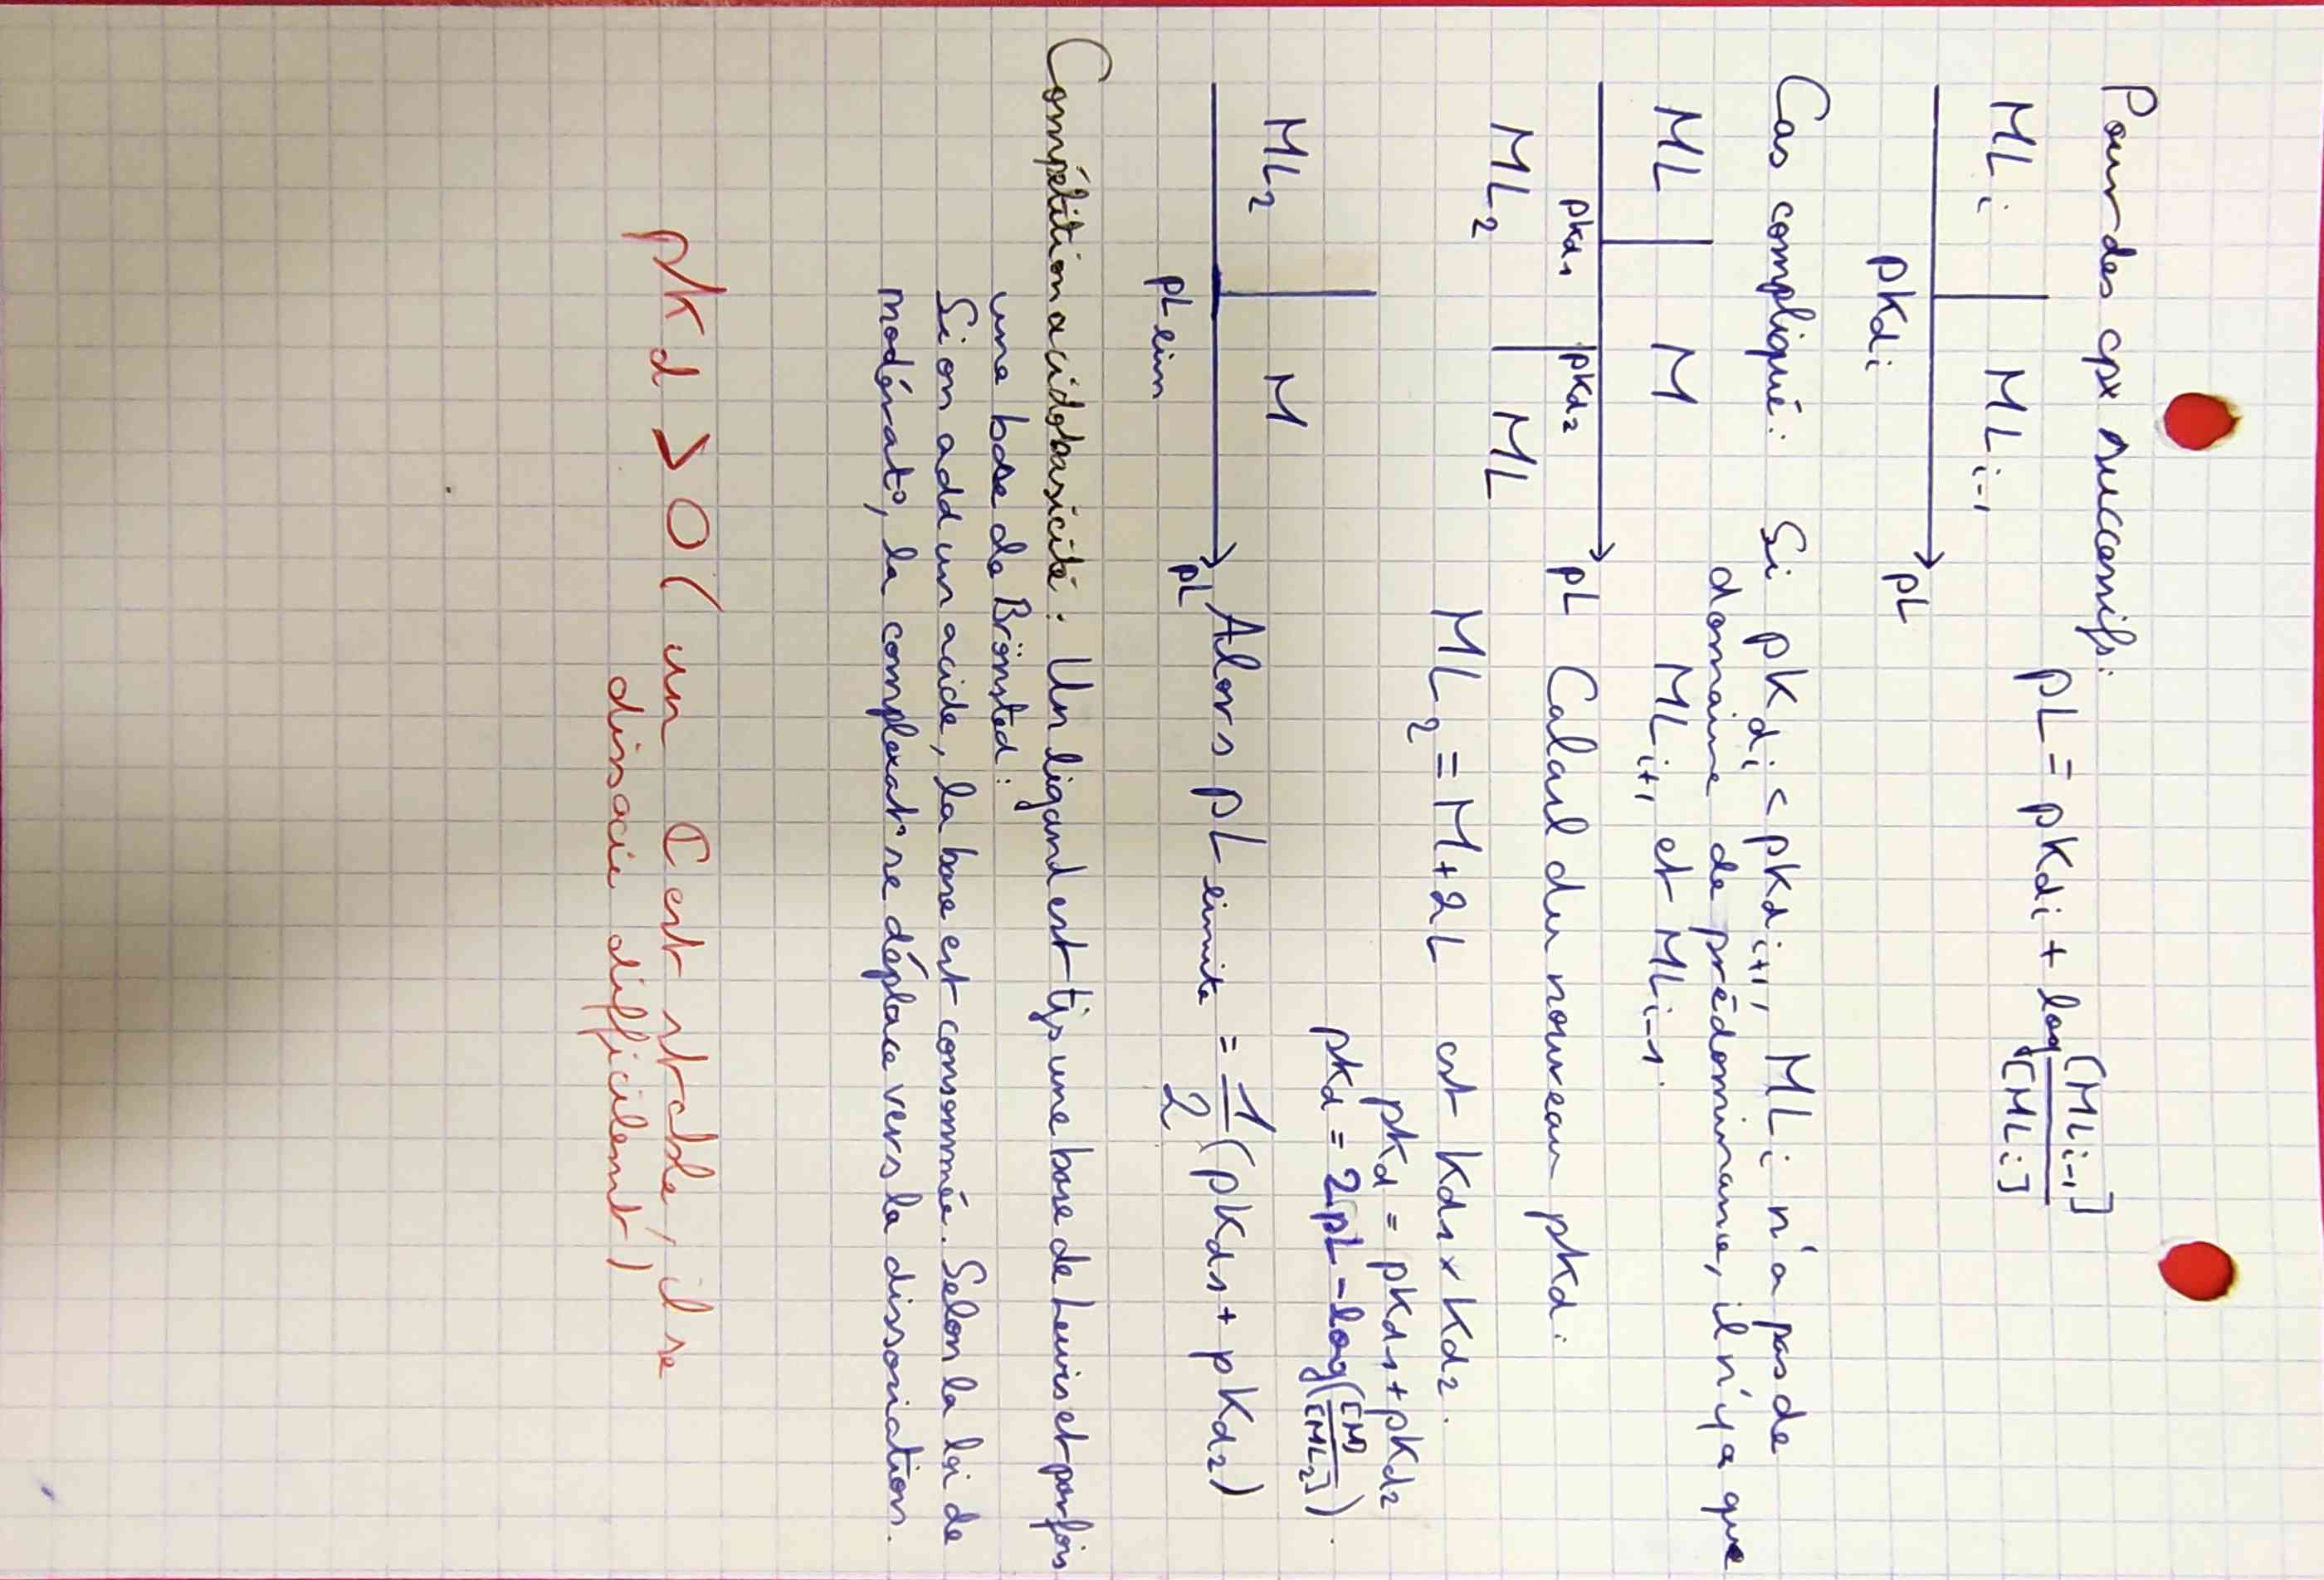 Pour des cpx successifs:
pL = pKdi + log [MLi-1]/[MLi]
MLi | MLi-1
pKdi pL
Cas compliqué: Si pKdi < pKdi+1, MLi n'a pas de
domaine de prédominance, il n'y a que
MLi+1 et MLi-1.
ML | M
pKd1 pKd2 pL
ML2 | ML
Calcul du nouveau pKd:
ML2 = M + 2L cst Kd1 × Kd2.
pKd = pKd1 + pKd2
pKd = 2pL - log([M]/[ML2]).
ML2 | M
pLlim pL
Alors pLlimite = 1/2 (pKd1 + pKd2)
Compétition acidobasicité: Un ligand est tjs une base de Lewis et parfois
une base de Brönsted:
Si on add un acide, la base est consommée. Selon la loi de
modérat°, la complexat° se déplace vers la dissociation.
pKd > 0 ( un C est stable, il se
dissocie difficilemt)